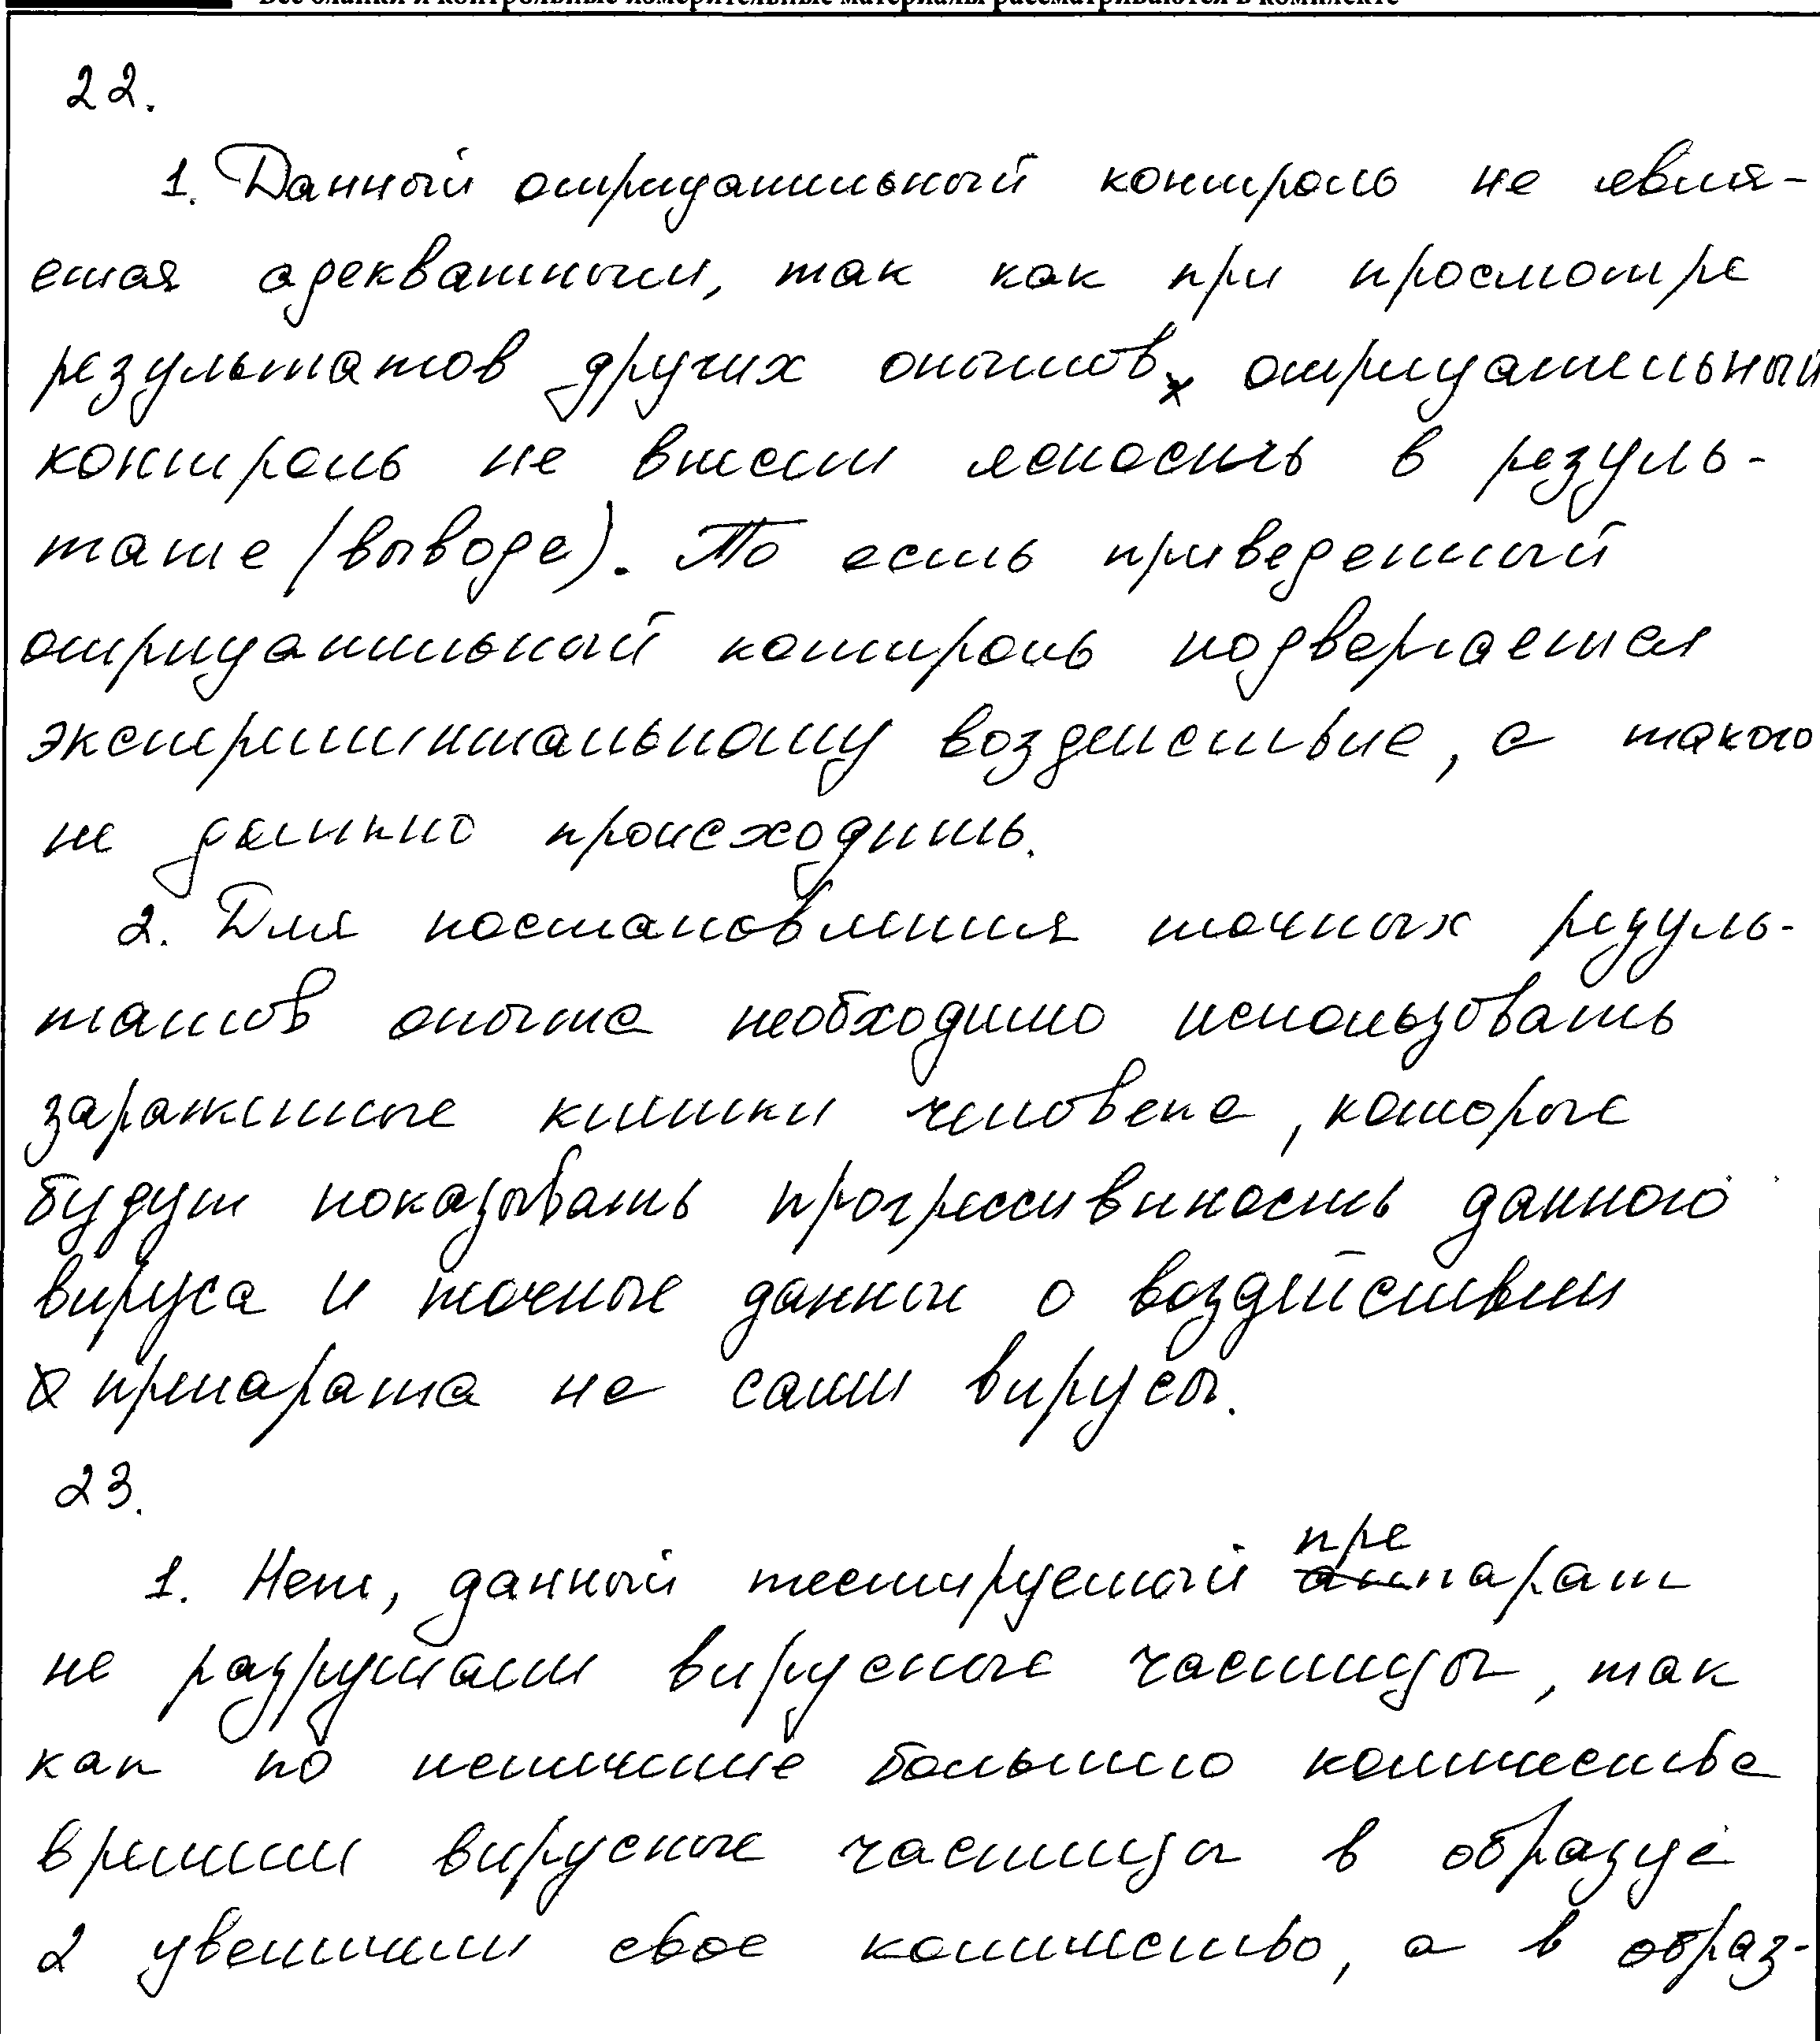 Все бланки и контрольные измерительные материалы рассматриваются в комплекте
22.
1. Данный отрицательный контроль не явля-
ется адекватным, так как при просмотре
результатов других опытов отрицательный
контроль не внесет ясность в резуль-
тате (выводе). То есть приведенный
отрицательный контроль подвергается
экспериментальному воздействие, а такого
не должно происходить.
2. Для постановления точных резуль-
татов опыта необходимо использовать
зараженные клетки человека, которые
будут показывать прогрессивность данного
вируса и точные данные о воздействии
препарата на сами вирусы.
23.
1. Нет, данный тестируемый препарат
не разрушает вирусные частицы, так
как по истечение большего количества
времени вирусные частицы в образце
2 увеличили свое количество, а в образ-